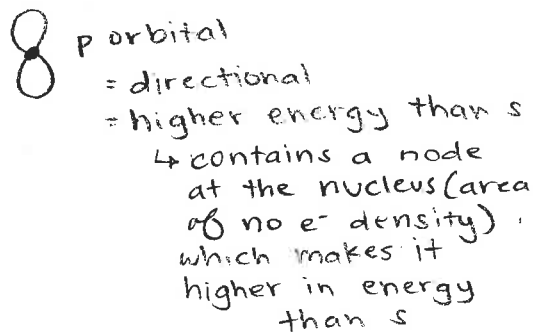 p orbital
= directional
= higher energy than s
↳ contains a node
at the nucleus (area
of no e- density)
which makes it
higher in energy
than s